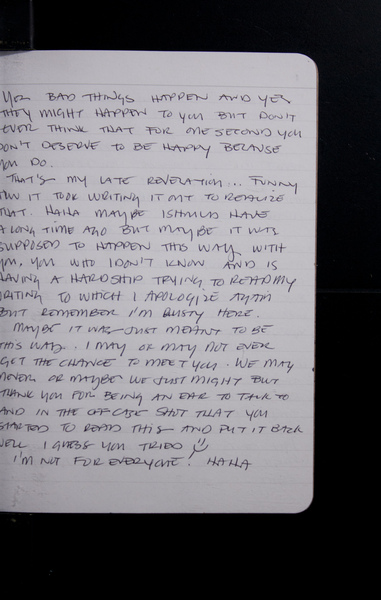 YES BAD THINGS HAPPEN AND YES
THEY MIGHT HAPPEN TO YOU BUT DON'T
EVER THINK THAT FOR ONE SECOND YOU
DON'T DESERVE TO BE HAPPY BECAUSE
YOU DO.
THAT'S MY LATE REVELATION... FUNNY
HOW IT TOOK WRITING IT OUT TO REALIZE
THAT. HAHA MAYBE I SHOULD HAVE
A LONG TIME AGO BUT MAYBE IT WAS
SUPPOSED TO HAPPEN THIS WAY, WITH
YOU, YOU WHO I DON'T KNOW AND IS
HAVING A HARDSHIP TRYING TO READ MY
WRITING TO WHICH I APOLOGIZE AGAIN
BUT REMEMBER I'M RUSTY HERE.
MAYBE IT WAS JUST MEANT TO BE
THIS WAY. I MAY OR MAY NOT EVER
GET THE CHANCE TO MEET YOU. WE MAY
NEVER OR MAYBE WE JUST MIGHT BUT
THANK YOU FOR BEING AN EAR TO TALK TO
AND IN THE OFF CASE SHOT THAT YOU
STARTED TO READ THIS AND PUT IT BACK
WELL I GUESS YOU TRIED
I'M NOT FOR EVERYONE! HAHA